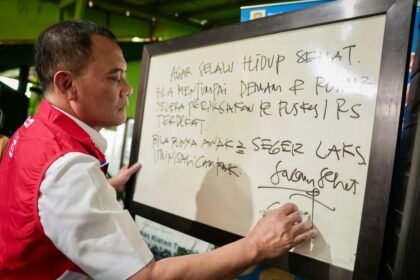 AGAR SELALU HIDUP SEHAT.
BILA MENJUMPAI DEMAM &
SEGERA PERIKSAKAN KE PUSKES / RS
TERDEKAT.
BILA PUNYA ANAK2 SEGER LAKS
IMUNISASI CAMPAK
Salam Sehat